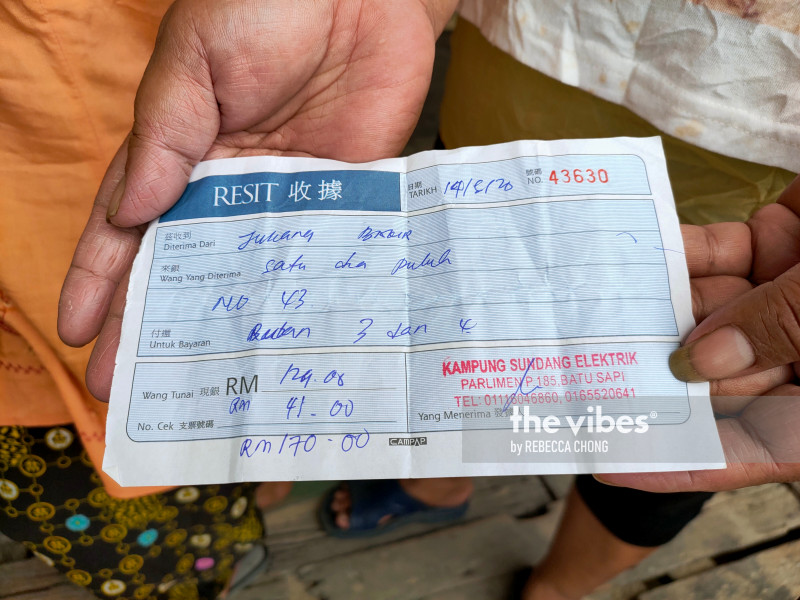 RESIT 收據
日期
TARIKH 14/5/20
號碼
NO. 43630
茲收到
Diterima Dari
來銀
Wang Yang Diterima satu puluh
NO 43
Untuk Bayaran Bulan 3 dan 4
Wang Tunai 現銀 RM 129.00
RM 41-00
No. Cek 支票號碼
RM170-00
CAMPAP
KAMPUNG SUNDANG ELEKTRIK
PARLIMEN P.185,BATU SAPI
TEL: 01116046860, 0165520641
Yang Menerima
the vibes®
by REBECCA CHONG